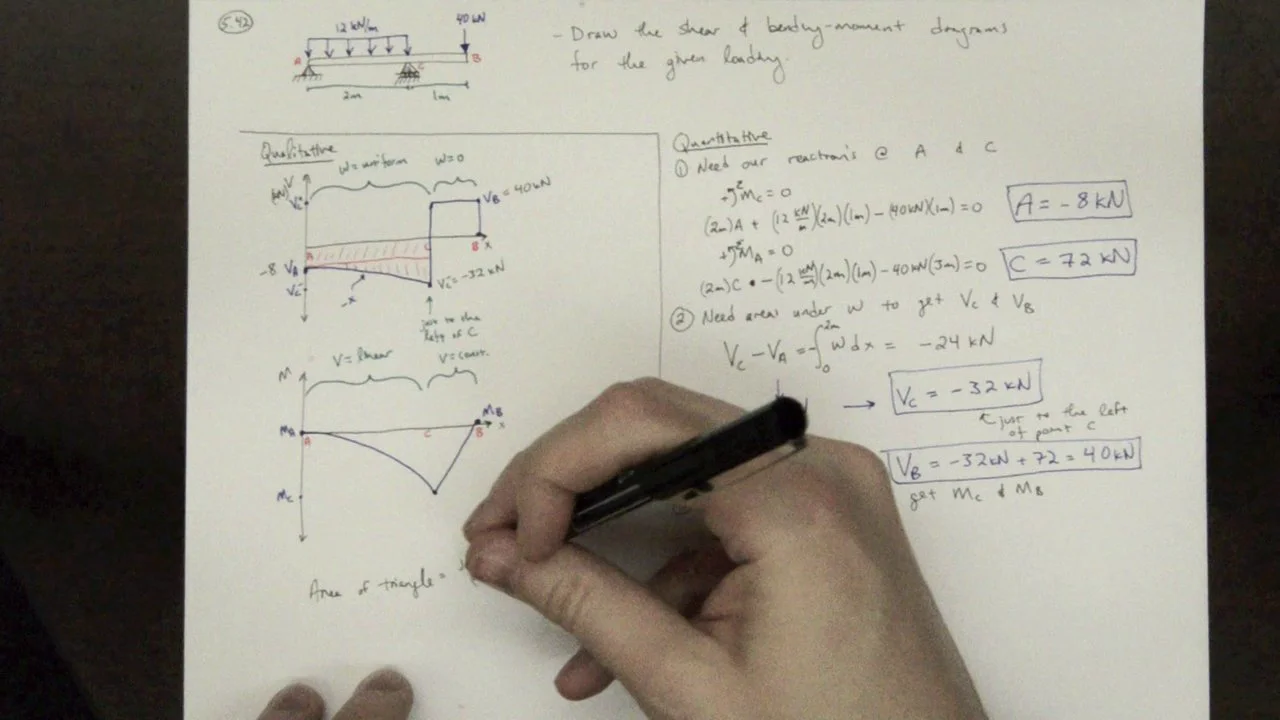 5.42
12 kN/m
40 kN
A
C
B
2m
1m
- Draw the shear & bending-moment diagrams
for the given loading.
Qualitative
W=uniform W=0
V
(kN)
V_B = 40 kN
A
C
B
x
-8 V_A
V_C⁻
V_C⁻ = -32 kN
-x
just to the
left of C
V=linear V=const.
M
M_A
A
C
M_B
B
x
M_C
Area of triangle =
Quantitative
① Need our reactions @ A & C
+↺ΣM_C = 0
(2m)A + (12 kN/m)(2m)(1m) - (40kN)(1m) = 0
A = -8 kN
+↺ΣM_A = 0
(2m)C - (12 kN/m)(2m)(1m) - 40kN(3m) = 0
C = 72 kN
② Need areas under W to get V_C & V_B
V_C - V_A = -∫₀^2m W dx = -24 kN
→ V_C = -32 kN
just to the left
of point C
V_B = -32kN + 72 = 40kN
get M_C & M_B